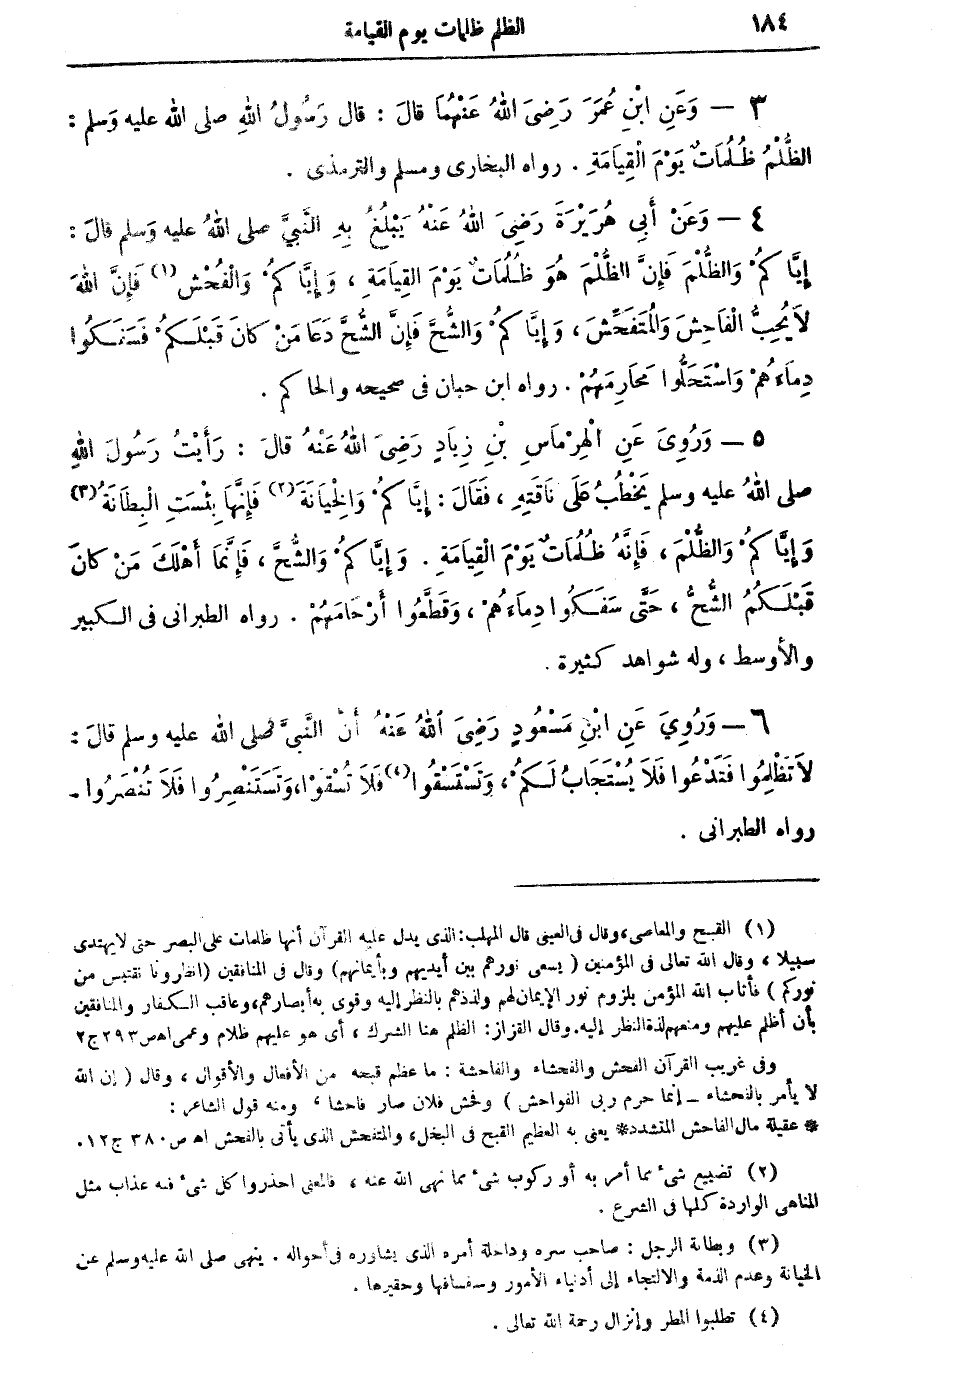 ١٨٤
الظلم ظلمات يوم القيامة
٣ – وَعَنِ ابْنِ عُمَرَ رَضِيَ اللهُ عَنْهُمَا قَالَ : قال رَسُولُ اللهِ صلى الله عليه وَسلم :
الظُّلْمُ ظُلُمَاتٌ يَوْمَ الْقِيَامَةِ . رواه البخارى ومسلم والترمذى .
٤ – وَعَنْ أَبِى هُرَيْرَةَ رَضِيَ اللهُ عَنْهُ يَبْلُغُ بِهِ النَّبِيَّ صلى اللهُ عليه وَسلم قالَ :
إِيَّا كُمْ وَالظُّلْمَ فَإِنَّ الظُّلْمَ هُوَ ظُلُمَاتٌ يَوْمَ القِيَامَةِ ، وَ إِيَّا كُمْ وَالْفُحْشَ (١) فَإِنَّ اللهَ
لاَ يُحِبُّ الْفَاحِشَ وَالْمُتَفَحِّشَ ، وَ إِيَّا كُمْ وَالشُّحَّ فَإِنَّ الشُّحَّ دَعَا مَنْ كَانَ قَبْلَكُمْ فَسَفَكُوا
دِمَاءَهُمْ وَاسْتَحَلُّوا مَحَارِمَهُمْ . رواه ابن حبان فى صحيحه والحاكم .
٥ – وَرُوِىَ عَنِ الْهِرْمَاسِ بْنِ زِيَادٍ رَضِيَ اللهُ عَنْهُ قالَ : رَأَيْتُ رَسُولَ اللهِ
صلى اللهُ عليه وسلم يَخْطُبُ عَلَى نَاقَتِهِ ، فَقَالَ : إِيَّا كُمْ وَالْخِيَانَةَ (٢) فَإِنَّهَا بِئْسَتِ الْبِطَانَةُ (٣)
وَ إِيَّا كُمْ وَالظُّلْمَ ، فَإِنَّهُ ظُلُمَاتٌ يَوْمَ الْقِيَامَةِ . وَ إِيَّا كُمْ وَالشُّحَّ ، فَإِنَّمَا أَهْلَكَ مَنْ كَانَ
قَبْلَكُمُ الشُّحُّ ، حَتَّى سَفَكُوا دِمَاءَهُمْ ، وَقَطَّعُوا أَرْحَامَهُمْ . رواه الطبرانى فى الكبير
والأوسط ، وله شواهد كثيرة .
٦ – وَرُوِيَ عَنِ ابْنِ مَسْعُودٍ رَضِيَ اللهُ عَنْهُ أَنَّ النَّبِيَّ صلى الله عليه وسلم قالَ :
لاَ تَظْلِمُوا فَتَدْعُوا فَلَا يُسْتَجَابُ لَكُمْ ، وَتَسْتَسْقُوا (٤) فَلَا تُسْقَوْا ، وَتَسْتَنْصِرُوا فَلَا تُنْصَرُوا –
رواه الطبرانى .
(١) القبح والمعاصى ، وقال فى العينى قال المهلب : الذى يدل عليه القرآن أنها ظلمات على البصر حتى لا يهتدى
سبيلا ، وقال الله تعالى فى المؤمنين ( يسعى نورهم بين أيديهم وبأيمانهم) وقال فى المنافقين (انظرونا نقتبس من
نوركم ) فأثاب الله المؤمن بلزوم نور الإيمان لهم ولذذهم بالنظر إليه وقوى به أبصارهم ، وعاقب الكفار والمنافقين
بأن أظلم عليهم ومنعهم لذة النظر إليه . وقال القزاز : الظلم هنا الشرك ، أى هو عليهم ظلام وعمى اه ص ٢٩٣ ج ٢
وفى غريب القرآن الفحش والفحشاء والفاحشة : ما عظم قبحه من الأفعال والأقوال ، وقال ( إن الله
لا يأمر بالفحشاء – إنما حرم ربى الفواحش ) وفحش فلان صار فاحشا ، ومنه قول الشاعر :
* عقيلة مال الفاحش المتشدد * يعنى به العظيم القبح فى البخل ، والمتفحش الذى يأتى بالفحش اه ص ٣٨٠ ج ١٢ .
(٢) تضييع شىء مما أمر به أو ركوب شىء مما نهى الله عنه ، فالمعنى احذروا كل شىء فيه عذاب مثل
المناهى الواردة كلها فى الشرع .
(٣) وبطانة الرجل : صاحب سره وداخلة أمره الذى يشاوره فى أحواله . ينهى صلى الله عليه وسلم عن
الخيانة وعدم الذمة والالتجاء إلى أدنياء الأمور وسفسافها وحقيرها .
(٤) تطلبوا المطر وإنزال رحمة الله تعالى .